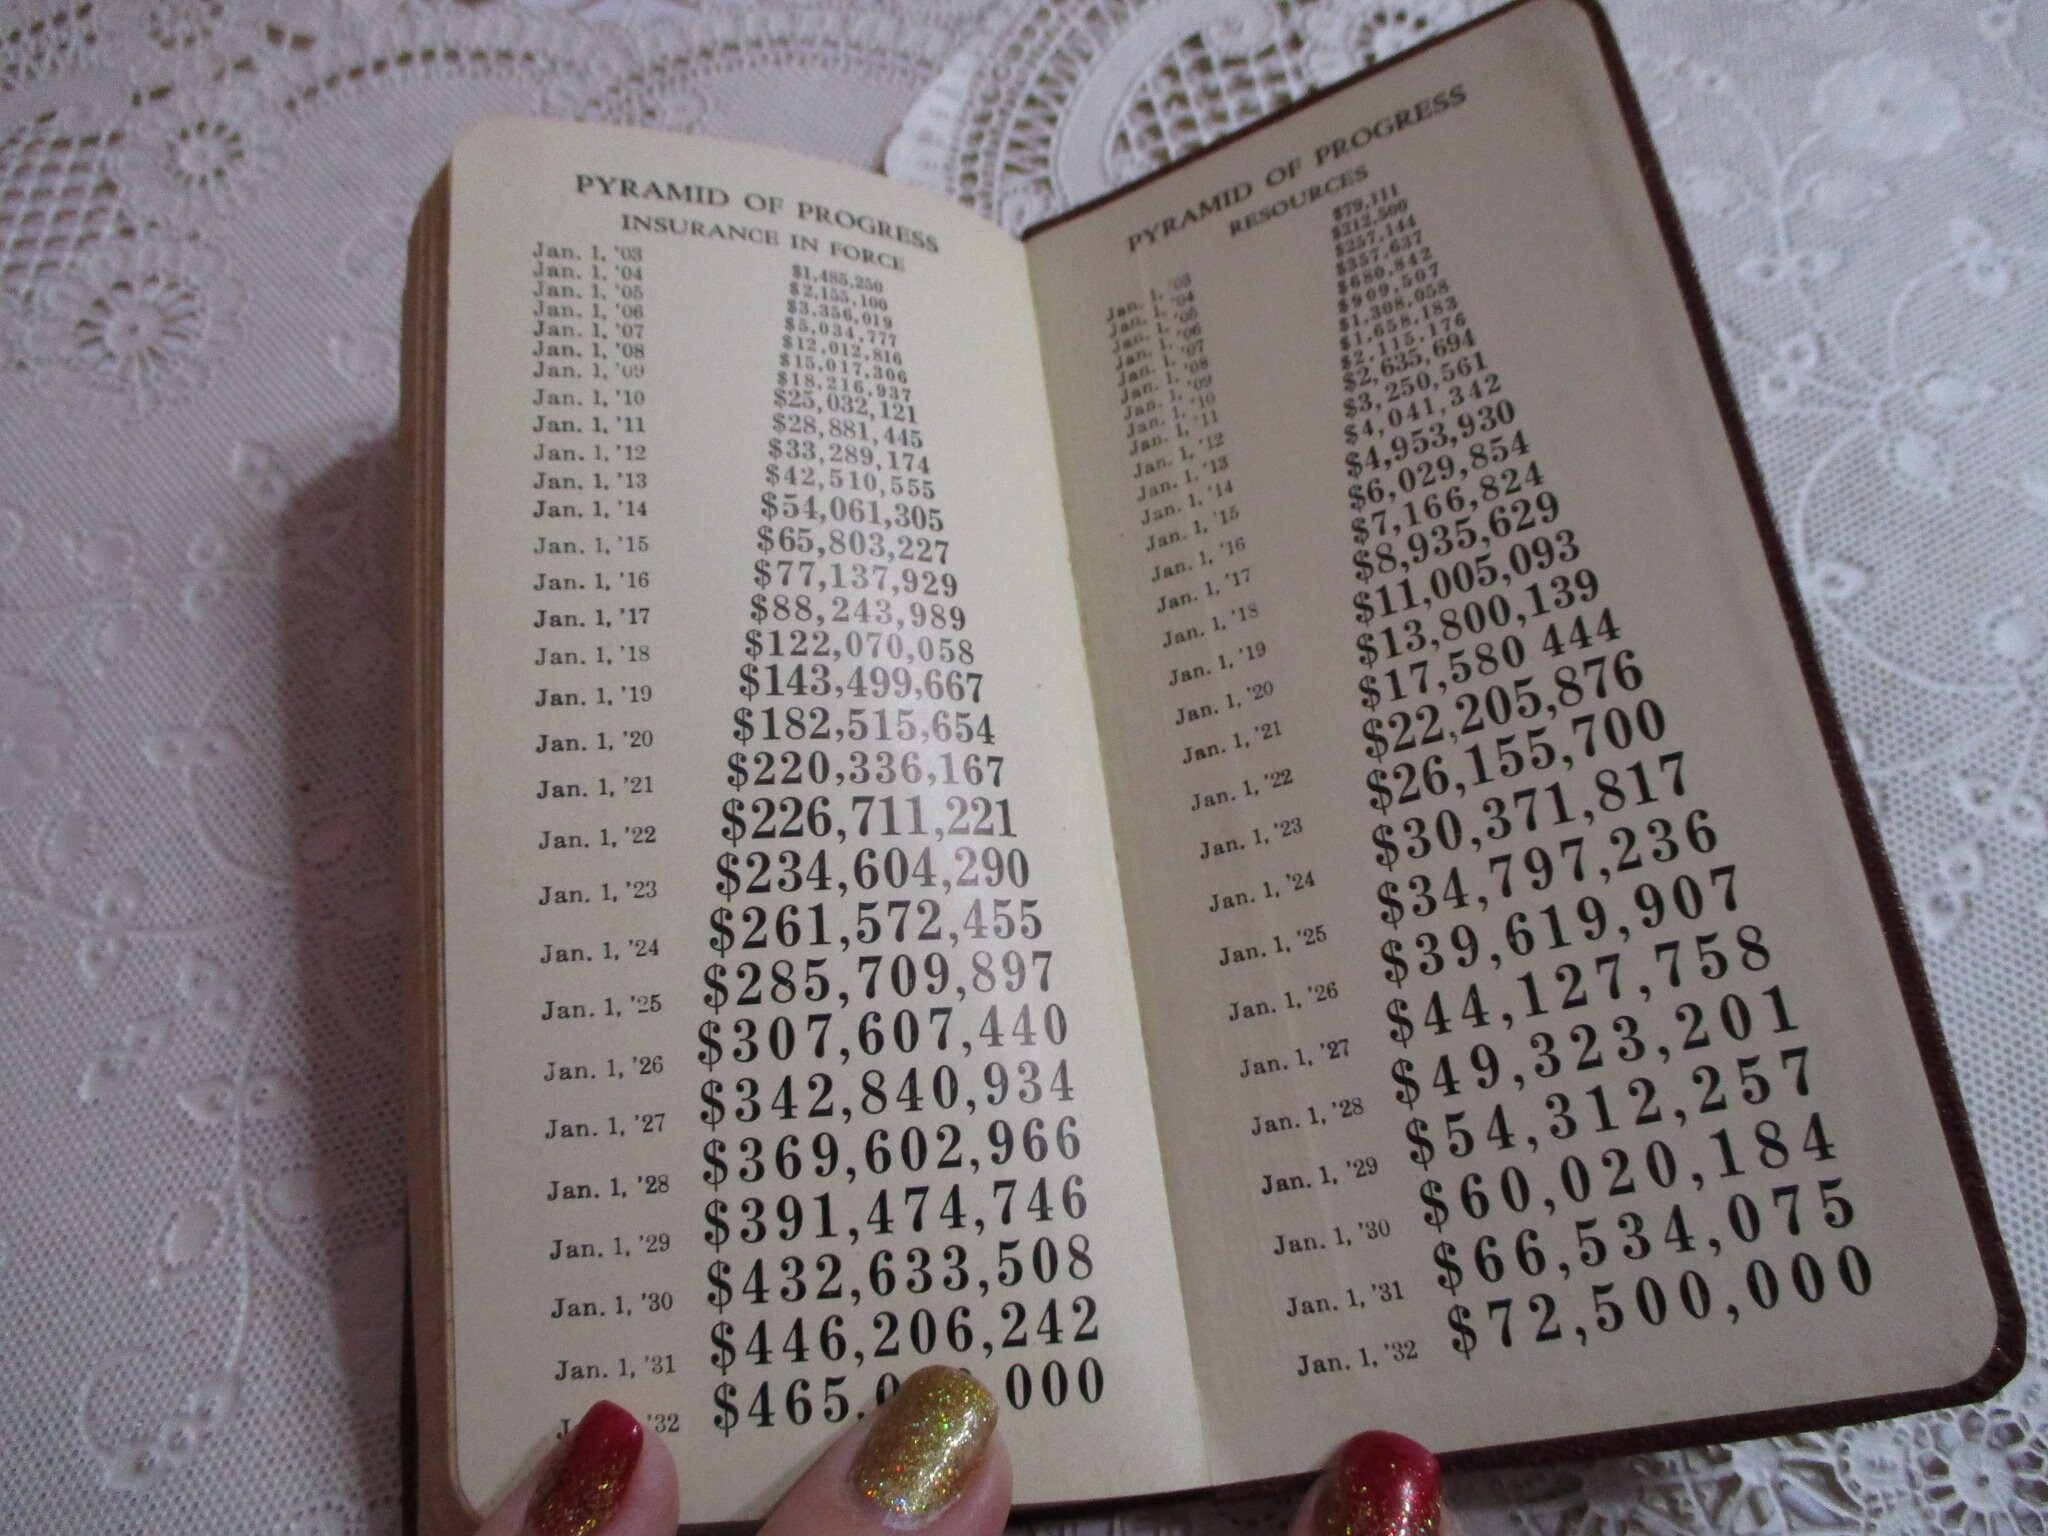 PYRAMID OF PROGRESS
INSURANCE IN FORCE
Jan. 1, '03 $1,485,250
Jan. 1, '04 $2,155,100
Jan. 1, '05 $3,356,019
Jan. 1, '06 $5,034,777
Jan. 1, '07 $12,012,816
Jan. 1, '08 $15,017,306
Jan. 1, '09 $18,216,937
Jan. 1, '10 $25,032,121
Jan. 1, '11 $28,881,445
Jan. 1, '12 $33,289,174
Jan. 1, '13 $42,510,555
Jan. 1, '14 $54,061,305
Jan. 1, '15 $65,803,227
Jan. 1, '16 $77,137,929
Jan. 1, '17 $88,243,989
Jan. 1, '18 $122,070,058
Jan. 1, '19 $143,499,667
Jan. 1, '20 $182,515,654
Jan. 1, '21 $220,336,167
Jan. 1, '22 $226,711,221
Jan. 1, '23 $234,604,290
Jan. 1, '24 $261,572,455
Jan. 1, '25 $285,709,897
Jan. 1, '26 $307,607,440
Jan. 1, '27 $342,840,934
Jan. 1, '28 $369,602,966
Jan. 1, '29 $391,474,746
Jan. 1, '30 $432,633,508
Jan. 1, '31 $446,206,242
'32
PYRAMID OF PROGRESS
RESOURCES
Jan. 1, '03 $79,111
Jan. 1, '04 $212,500
Jan. 1, '05 $257,144
Jan. 1, '06 $357,637
Jan. 1, '07 $680,842
Jan. 1, '08 $909,507
Jan. 1, '09 $1,308,058
Jan. 1, '10 $1,658,183
Jan. 1, '11 $2,115,176
Jan. 1, '12 $2,635,694
Jan. 1, '13 $3,250,561
Jan. 1, '14 $4,041,342
Jan. 1, '15 $4,953,930
Jan. 1, '16 $6,029,854
Jan. 1, '17 $7,166,824
Jan. 1, '18 $8,935,629
Jan. 1, '19 $11,005,093
Jan. 1, '20 $13,800,139
Jan. 1, '21 $17,580 444
Jan. 1, '22 $22,205,876
Jan. 1, '23 $26,155,700
Jan. 1, '24 $30,371,817
Jan. 1, '25 $34,797,236
Jan. 1, '26 $39,619,907
Jan. 1, '27 $44,127,758
Jan. 1, '28 $49,323,201
Jan. 1, '29 $54,312,257
Jan. 1, '30 $60,020,184
Jan. 1, '31 $66,534,075
Jan. 1, '32 $72,500,000